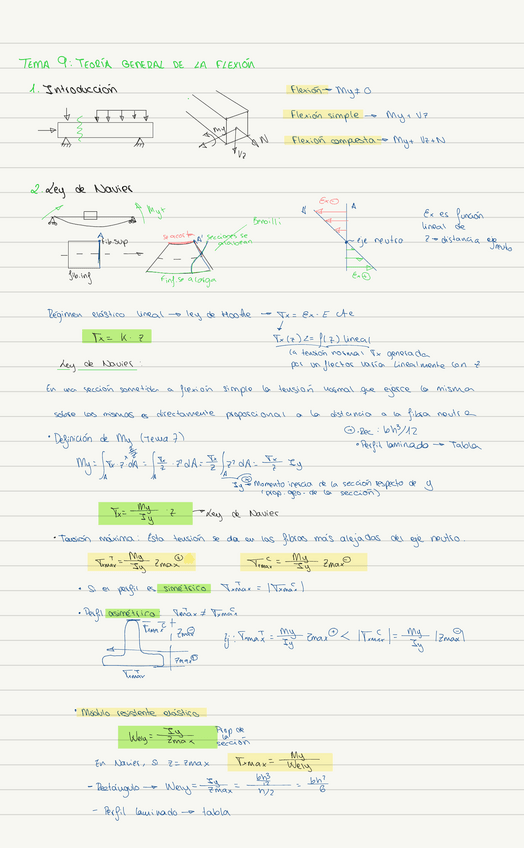 TEMA 9: TEORÍA GENERAL DE LA FLEXIÓN
1. Introducción
Flexión → My ≠ 0
Flexión simple → My + Vz
Flexión compuesta → My + Vz + N
My
N
Vz
2. Ley de Navier
My+
fib.sup
fib.inf
se acorta
secciones se
F.inf. se alarga
εx ⊖
A
eje neutro
εx ⊕
εx es función
lineal de
z → distancia eje
neutro
Régimen elástico lineal → ley de Hooke → σx = εx · E cte
σx = K · z
σx(z) = f(z) lineal
la tensión normal σx generada
por un flector varía linealmente con z
Ley de Navier:
En una sección sometida a flexión simple la tensión normal que ejerce la misma
sobre las mismas es directamente proporcional a la distancia a la fibra neutra
· Definición de My (tema 7)
⊙ · Rec: bh³/12
· Perfil laminado → Tabla
My = ∫A σx · z · dA = ∫A σx/z · z² dA = σx/z ∫A z² dA = σx/z · Iy
Iy → Momento inercia de la sección respecto de y
(prop. geo. de la sección)
σx = My/Iy · z → Ley de Navier
· Tensión máxima: Esta tensión se da en las fibras más alejadas del eje neutro.
σmax^T = My/Iy zmax⊕
σmax^C = My/Iy zmax⊖
· Si es perfil es simétrico σmax^T = |σmax^C|
· Perfil asimétrico: σmax^T ≠ σmax^C
zmax⊕
zmax⊖
σmax^T
ej: σmax^T = My/Iy zmax⊕ < |σmax^C| = My/Iy |zmax⊖|
· Módulo resistente elástico
Wely = Iy/zmax
Prop de
la
sección
En Navier, si z = zmax σmax = My/Wely
- Rectángulo → Wely = Iy/zmax = (bh³/12)/(h/2) = bh²/6
- Perfil laminado → tabla